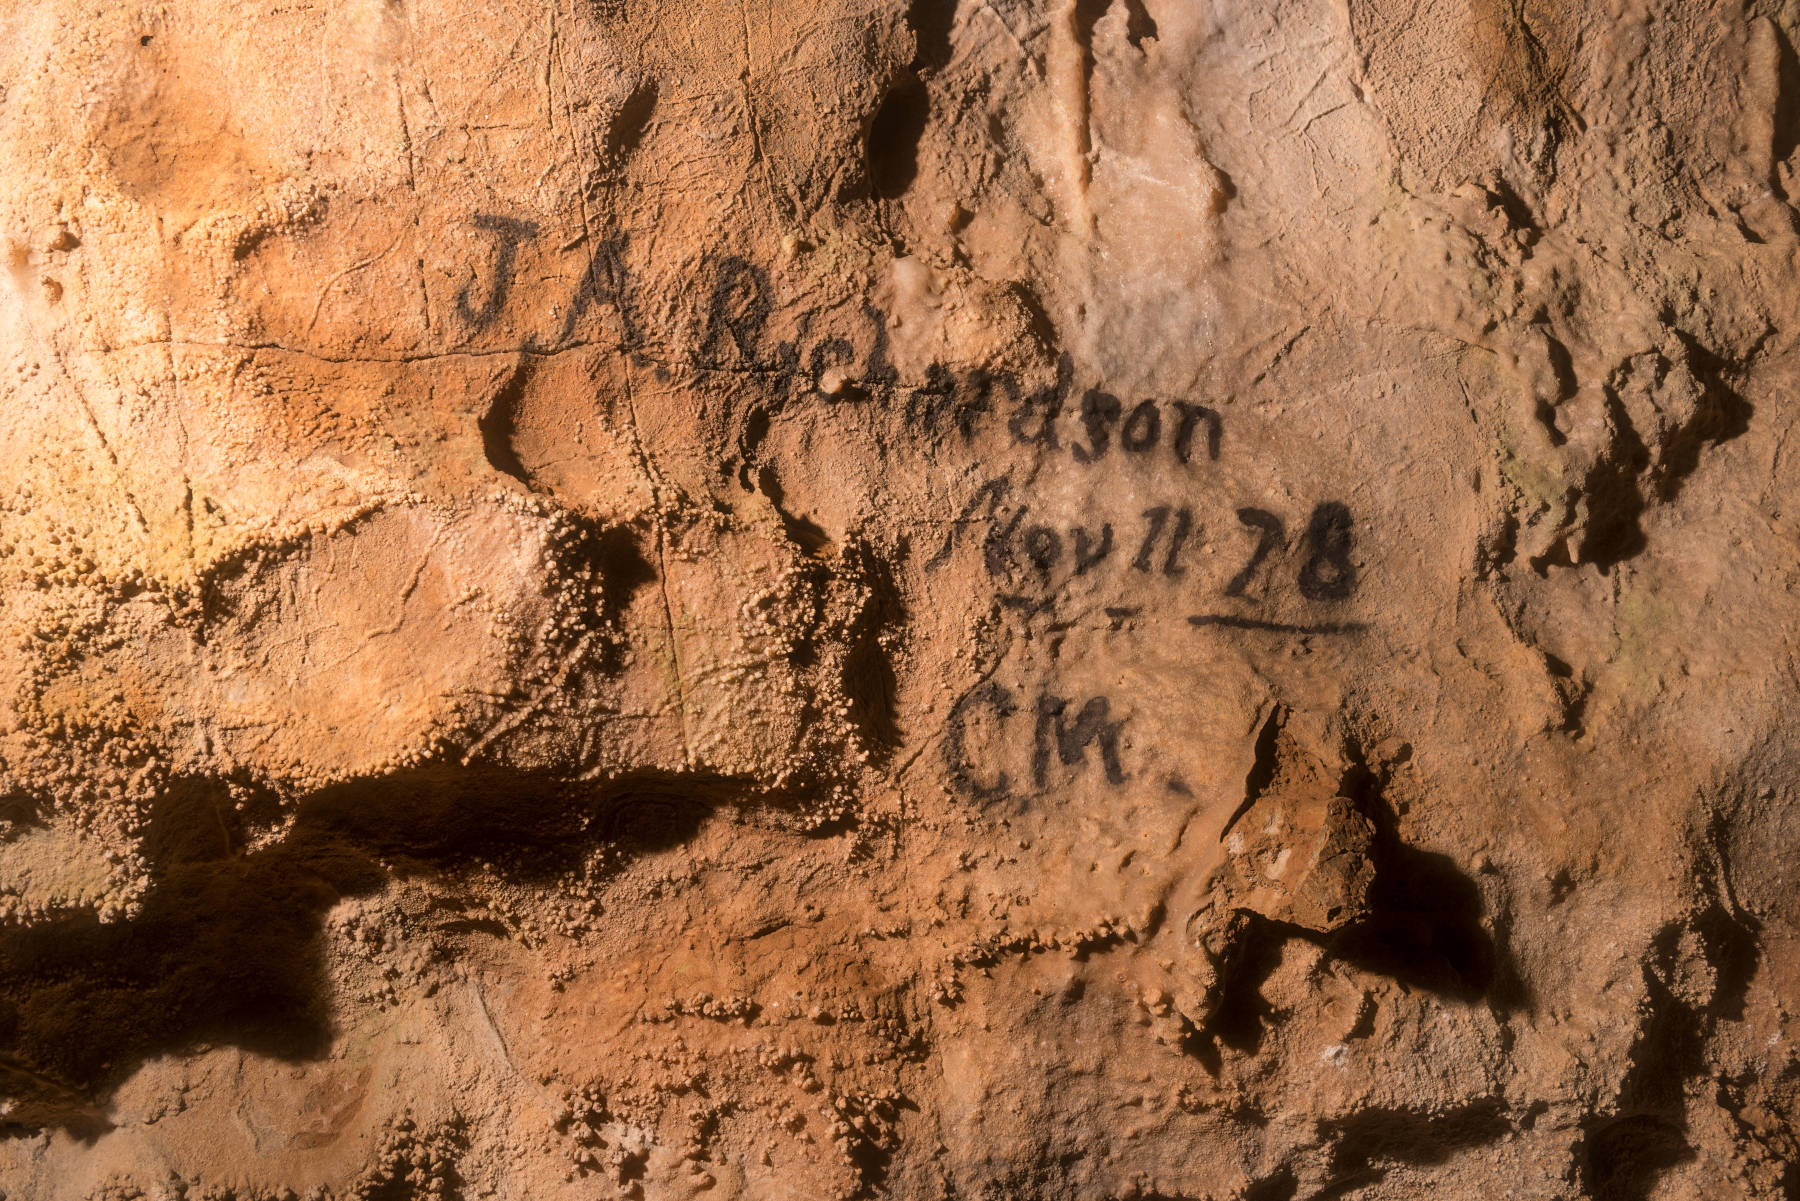 J A Richardson
Nov 11 28
CM